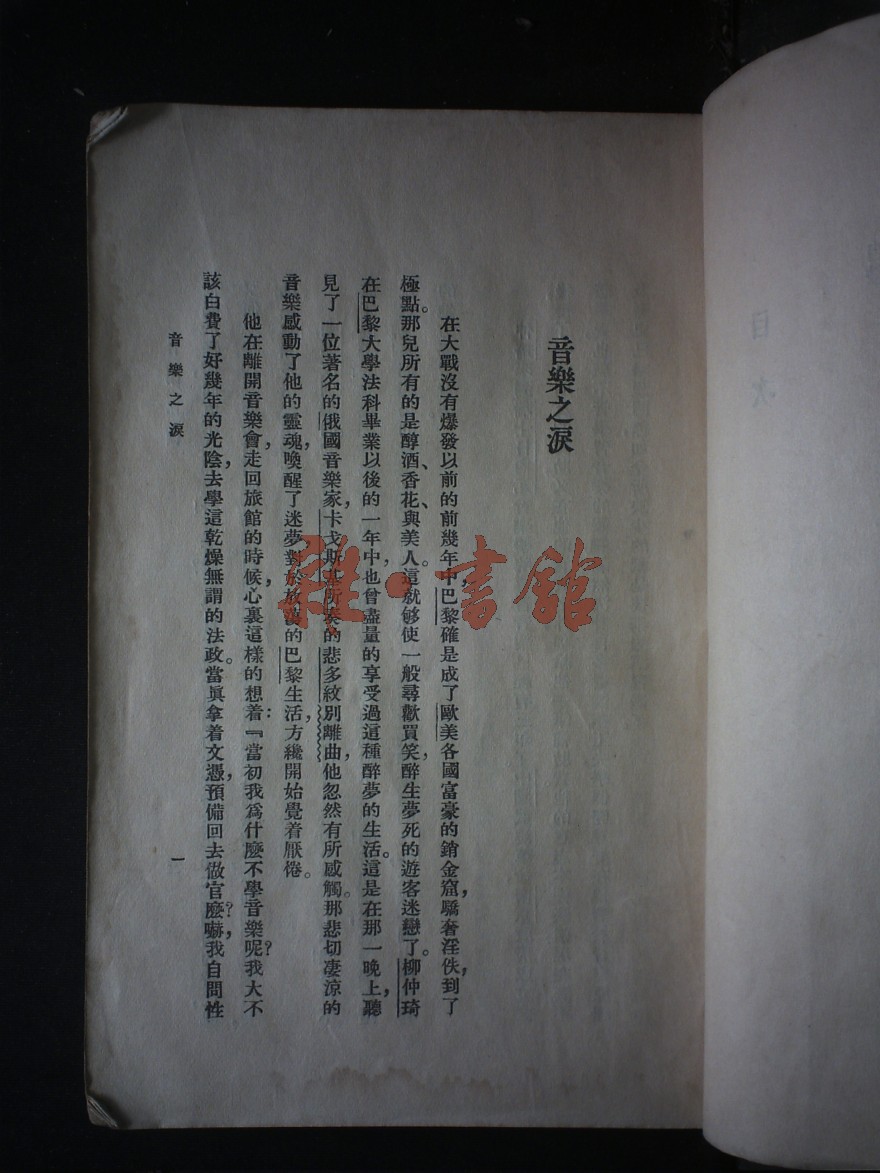 音樂之淚
在大戰沒有爆發以前的前幾年中,巴黎確是成了歐美各國富豪的銷金窟,驕奢淫佚,到了
極點。那兒所有的是醇酒、香花、與美人。這就够使一般尋歡買笑,醉生夢死的遊客迷戀了。柳仲琦
在巴黎大學法科畢業以後的一年中,也曾盡量的享受過這種醉夢的生活。這是在那一晚上,聽
見了一位著名的俄國音樂家,卡戈斯基所奏的悲多紋別離曲,他忽然有所感觸。那悲切凄涼的
音樂感動了他的靈魂,喚醒了迷夢,對於放蕩的巴黎生活,方纔開始覺着厭倦。
他在離開音樂會,走回旅館的時候,心裏這樣的想着:『當初我爲什麼不學音樂呢?我大不
該白費了好幾年的光陰,去學這乾燥無謂的法政。當眞拿着文憑,預備回去做官麼?嚇,我自問性
音樂之淚
一
目次
雜·書館